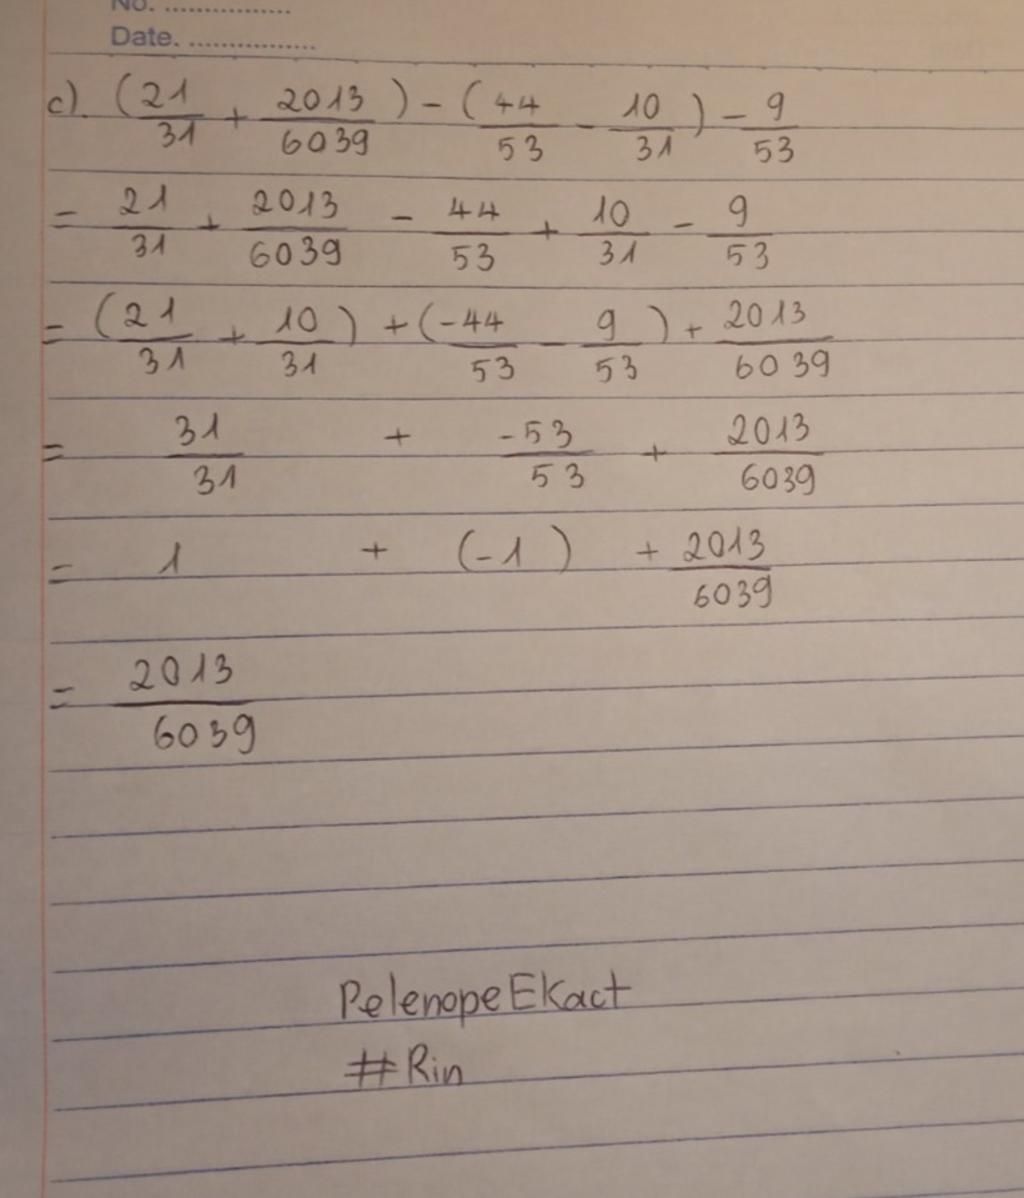 No. ................
Date. ................
c). (21/31 + 2013/6039) - (44/53 - 10/31) - 9/53
= 21/31 + 2013/6039 - 44/53 + 10/31 - 9/53
= (21/31 + 10/31) + (-44/53 - 9/53) + 2013/6039
= 31/31 + -53/53 + 2013/6039
= 1 + (-1) + 2013/6039
= 2013/6039
PelenopeEKact
#Rin